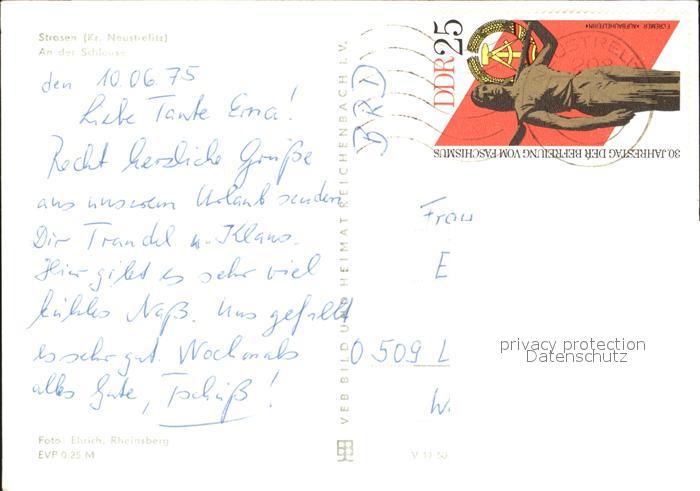 Strasen (Kr. Neustrelitz)
An der Schleuse
den 10.06.75
Liebe Tante Erna!
Recht herzliche Grüße
aus unserem Urlaub senden
Dir Traudel u. Klaus.
Hier gibt es sehr viel
kühles Naß. Uns gefällt
es sehr gut. Nochmals
alles Gute, Tschüß!
Foto: Ehrich, Rheinsberg
EVP 0,25 M
VEB BILD UND HEIMAT REICHENBACH I. V.
BRD
DDR 25
F. CREMER »AUFBAUHELFERIN«
30. JAHRESTAG DER BEFREIUNG VOM FASCHISMUS
Frau
E
0509 L
W.
V 11 50
privacy protection
Datenschutz